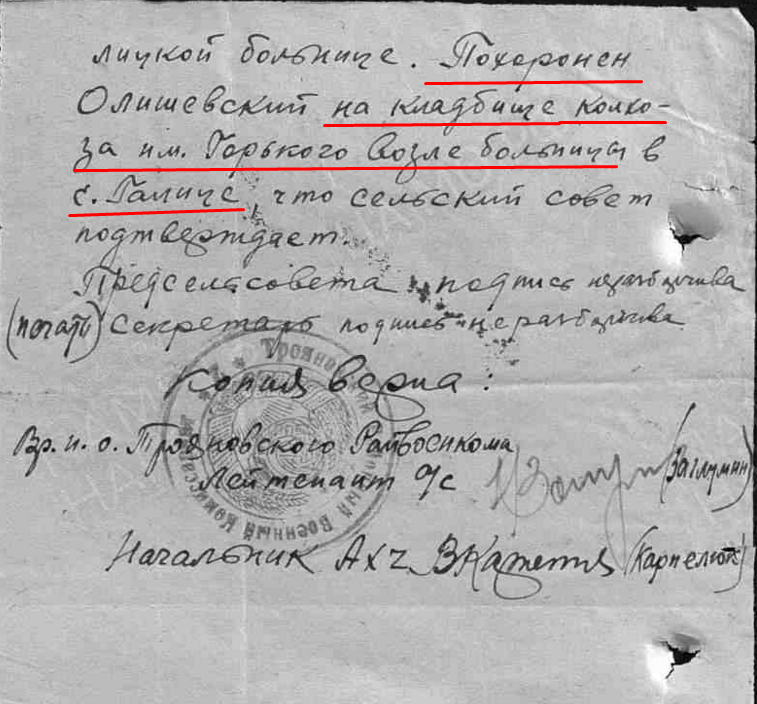 лицкой больнице. Похоронен
Олишевский на кладбище колхо-
за им. Горького возле больницы в
с. Галице, что сельский совет
подтверждает.
Предсельсовета подпись неразборчива
(печать) Секретарь подпись неразборчива
Копия верна:
Вр. и. о. Трояновского Райвоенкома
Лейтенант
(Заглумин)
Начальник АХЧ (Карпелюк)